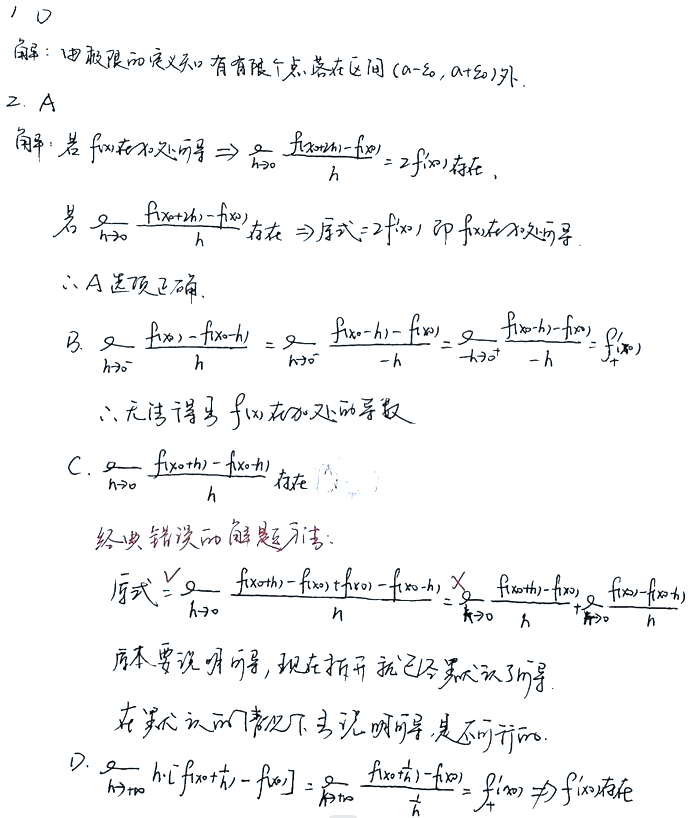 1 D
解：由极限的定义知 有有限个点落在区间 (a-ε₀, a+ε₀)外.
2. A
解：若 f(x)在x₀处可导 ⇒ lim_{h→0} \frac{f(x₀+2h)-f(x₀)}{h} = 2f'(x₀)存在,
若 lim_{h→0} \frac{f(x₀+2h)-f(x₀)}{h} 存在 ⇒ 原式=2f'(x₀) 即 f(x)在x₀处可导.
∴ A 选项正确.
B. lim_{h→0⁻} \frac{f(x₀)-f(x₀-h)}{h} = lim_{h→0⁻} \frac{f(x₀-h)-f(x₀)}{-h} = lim_{-h→0⁺} \frac{f(x₀-h)-f(x₀)}{-h} = f'₊(x₀)
∴ 无法得出 f(x)在x₀处的导数
C. lim_{h→0} \frac{f(x₀+h)-f(x₀-h)}{h} 存在
经典错误的解题方法:
原式 =√ lim_{h→0} \frac{f(x₀+h)-f(x₀)+f(x₀)-f(x₀-h)}{h} =× lim_{h→0} \frac{f(x₀+h)-f(x₀)}{h} + lim_{h→0} \frac{f(x₀)-f(x₀-h)}{h}
原本要说明可导, 现在拆开就已经默认了可导.
在默认的情况下去说明可导,是不可行的.
D. lim_{h→+∞} h·[f(x₀+\frac{1}{h})-f(x₀)] = lim_{h→+∞} \frac{f(x₀+\frac{1}{h})-f(x₀)}{\frac{1}{h}} = f'₊(x₀) ⇏ f'(x₀)存在